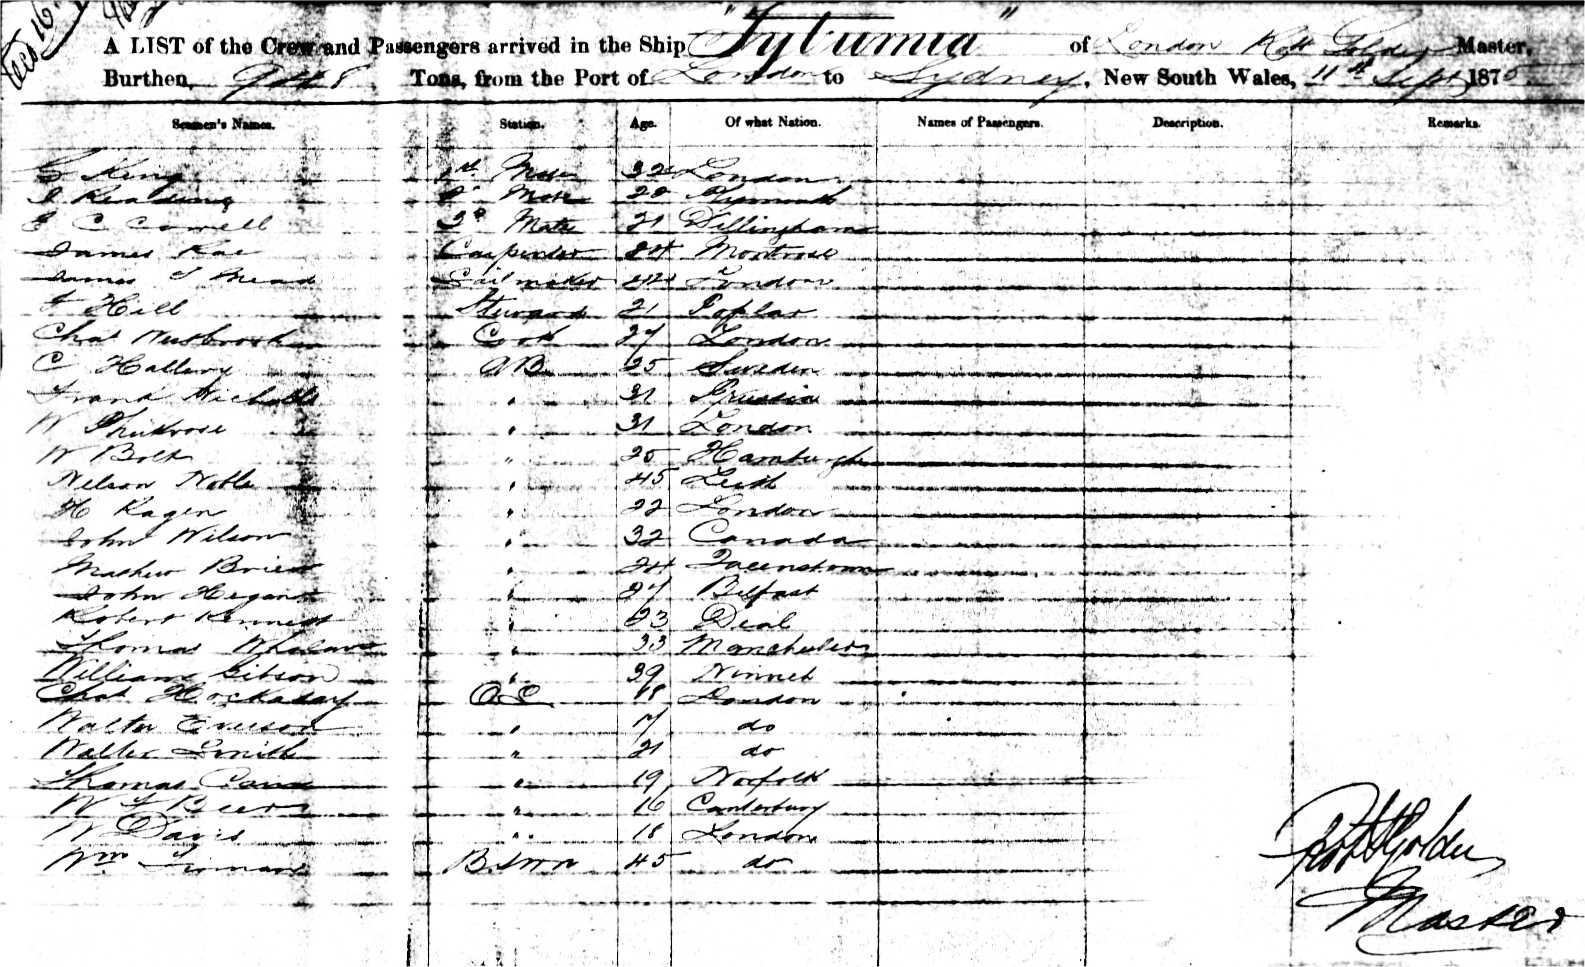 A LIST of the Crew and Passengers arrived in the Ship "Tyburnia" of London Robt Golder Master,
Burthen, Tons, from the Port of London to Sydney, New South Wales, 11th Sept 1875
Seamen's Names. Station. Age. Of what Nation. Names of Passengers. Description. Remarks.
G King 1st Mate 32 London
Reading 2d Mate 28 Plymouth
C Cowell 3d Mate 21 Dillingham
James Rae Carpenter 24 Montrose
James T Mead Sailmaker 42 London
Hill Steward 21 Poplar
Chas Cook 27 London
C AB 25 Sweden
Frank Nicholls " 31 Prussia
W " 31 London
W Bolt " 25 Hamburgh
Nelson Noble " 45 Leith
H Kagen " 22 London
John Wilson " 32 Canada
Mathew Brien " 24 Queenstown
John Hegan " 27 Belfast
Robert Kennett " 23 Deal
Thomas " 33 Manchester
William Gibson " 39
Chas Hockaday OS 18 London
Walter Everson " 17 do
Walter Smith " 21 do
Thomas " 19 Norfolk
W " 16 Canterbury
W Davis " 18 London
Wm 45 do
Robt Golder
Master